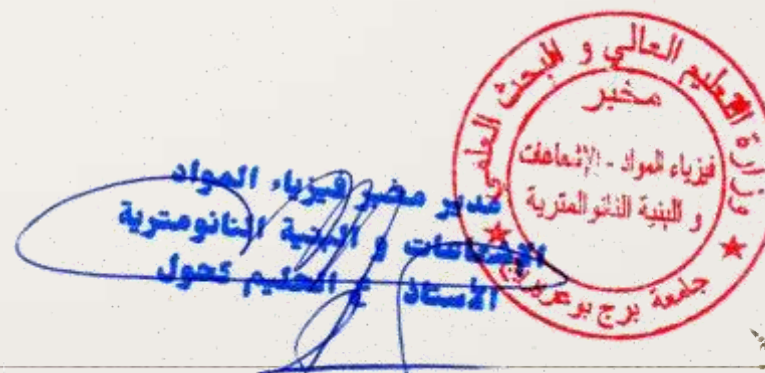 وزارة التعليم العالي و البحث العلمي
مخبر
فيزياء المواد - الإشعاعات
و البنية النانومترية
جامعة برج بوعريريج
مدير مخبر فيزياء المواد
الإشعاعات و البنية النانومترية
الأستاذ ع الحليم كحول